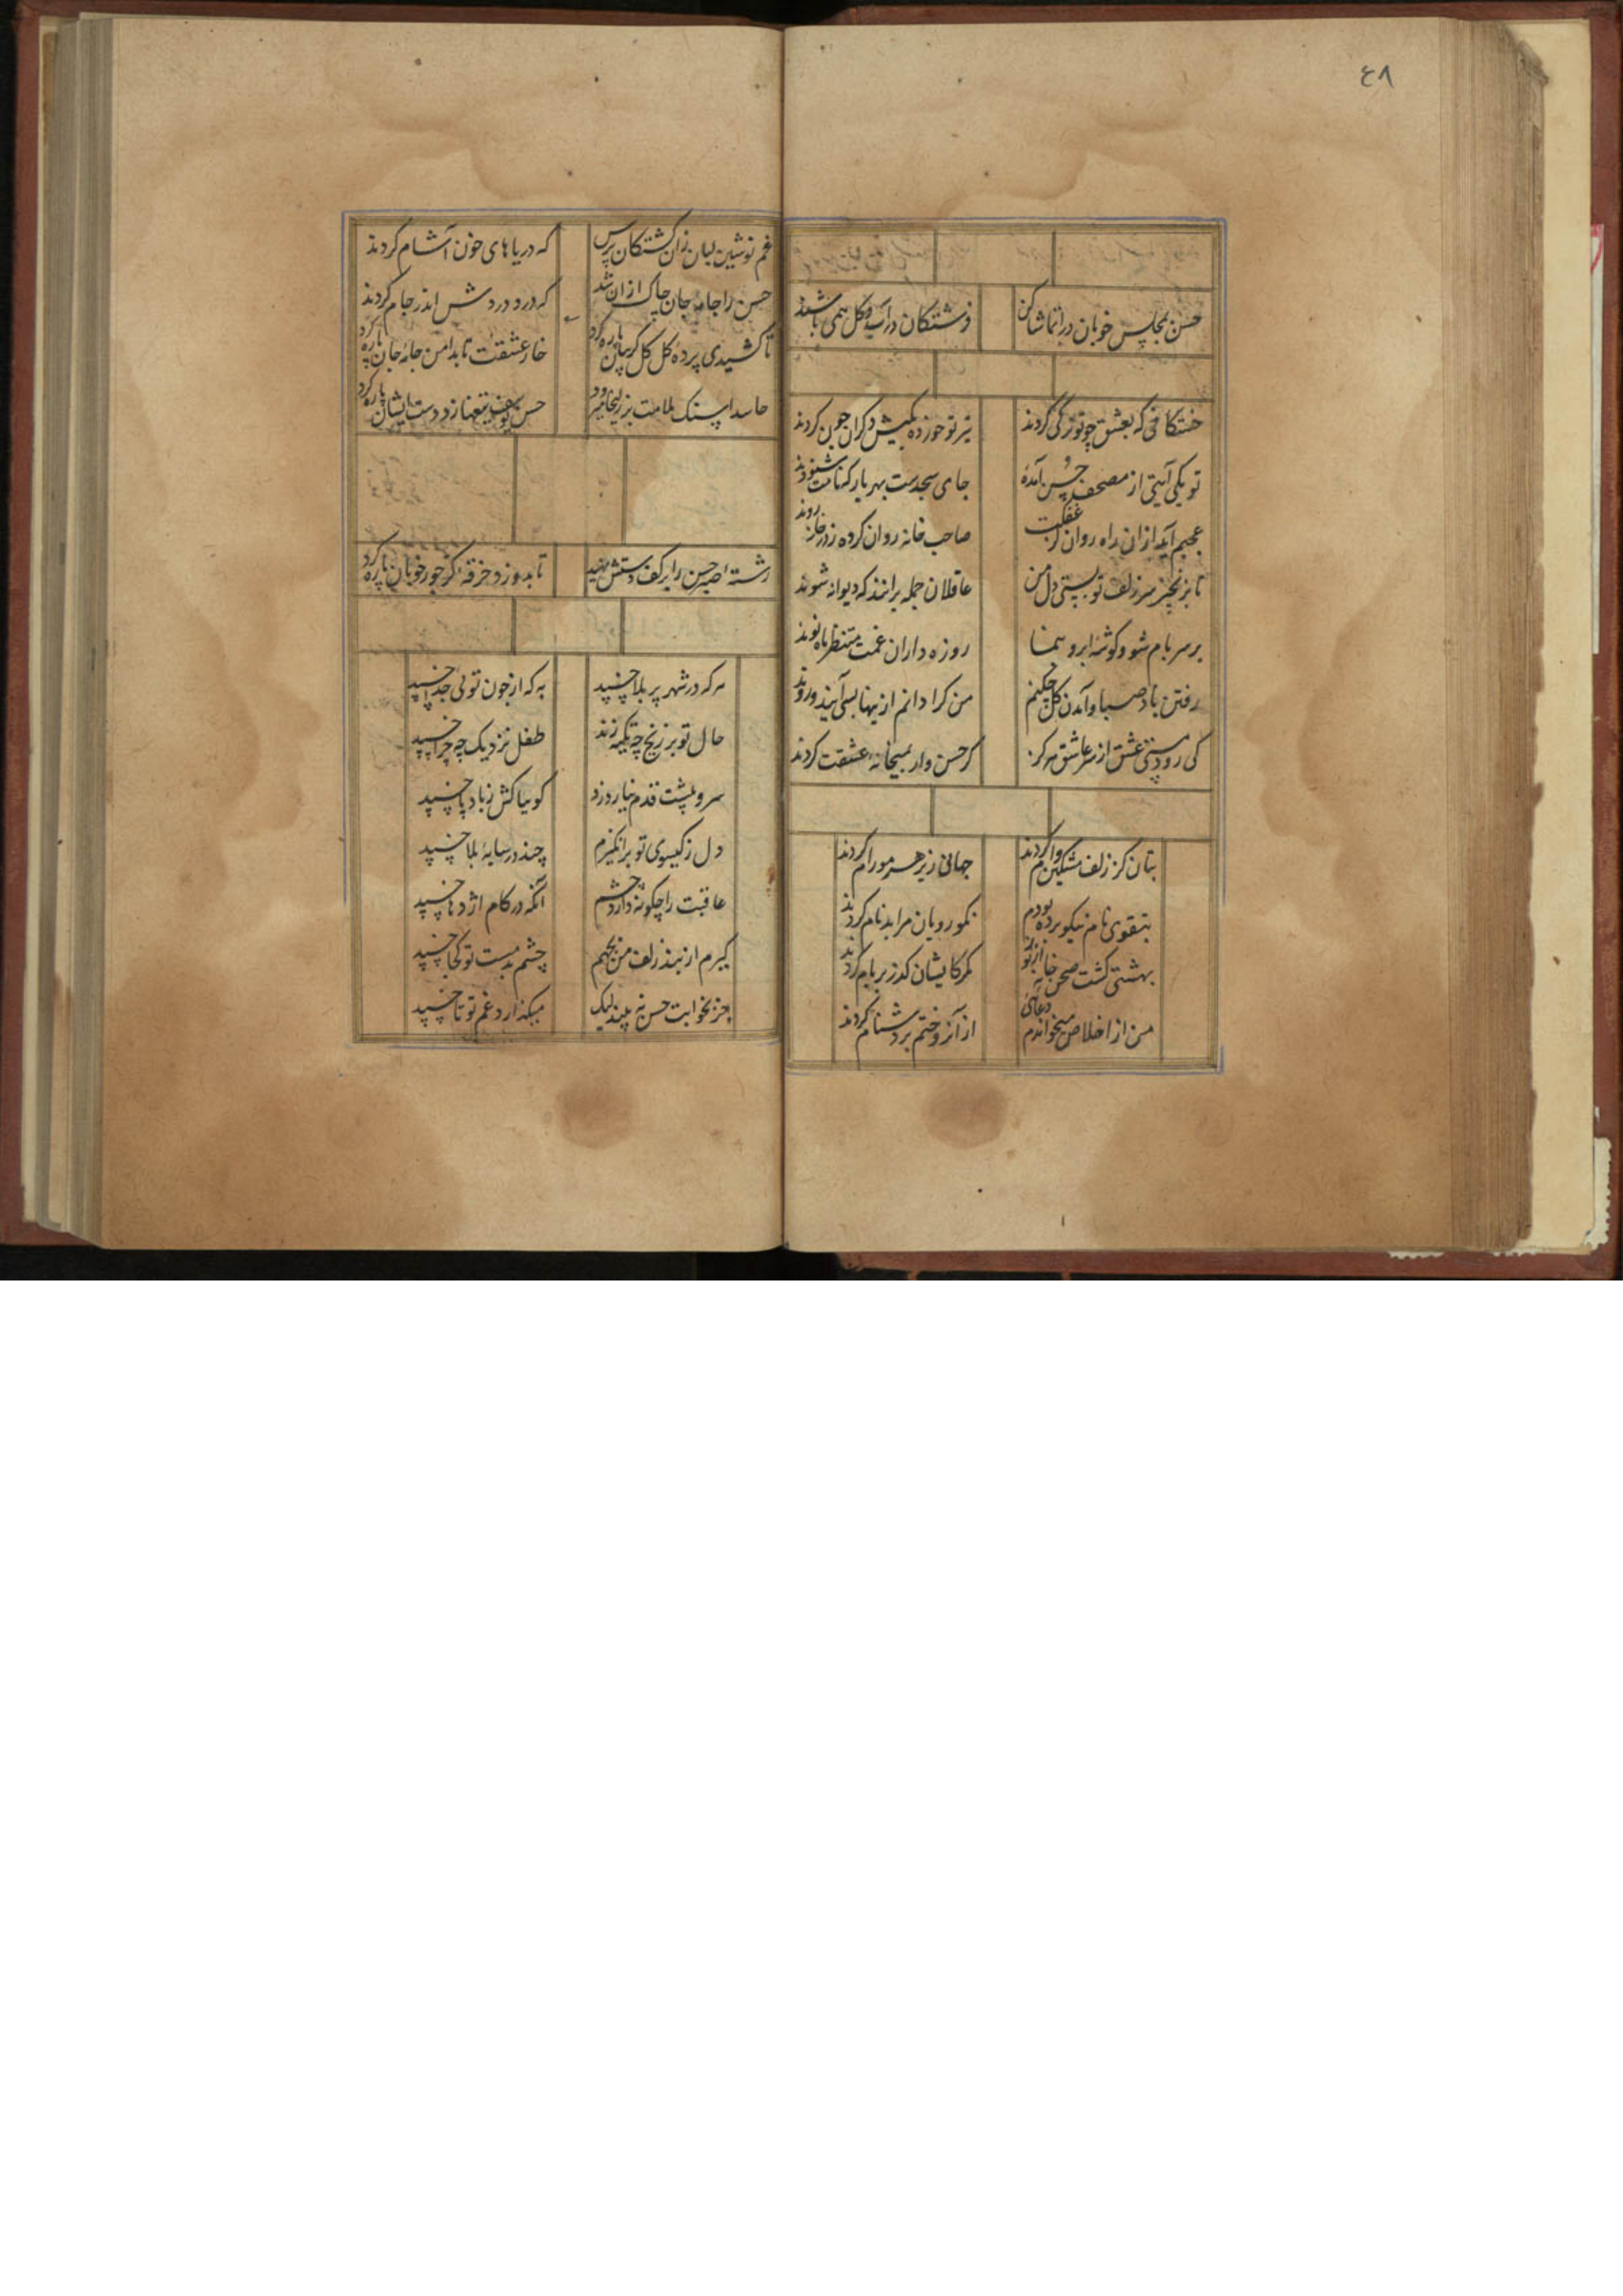 ٤٨
حسن بمجلس خوبان درا تماشا کن
فرشتکان در آب و کل همی باشند
خستکانی که بعشق چو تو ترکی کردند
تیر تو خورده بکیش دکران چون کردند
تو یکی آیتی از مصحف حسن آمدهٔ
جای سجدست بهر بار که نامت شنوند
عجبم آید از ان راه روان غفلت
صاحب خانه روان کرده ز در خانه روند
تا بزنجیر سر زلف تو بستی دل من
عاقلان جمله برانند که دیوانه شوند
بر سر بام شو و کوشهٔ ابرو بنما
روزه داران غمت منتظر ماه نوند
رفتن باد صبا و آمدن کل چکنم
من کرا دانم ازینها بسی آیند و روند
کی رود مستی عشق از سر عاشق هرکز
کر حسن وار بمیخانهٔ عشقت کردند
بتان کز زلف مشکین دام کردند
جهانی زیر هر مو رام کردند
بتقوی نام نیکو برده بودم
نکو رویان مرا بدنام کردند
بهشتی کشت صحن خانه از نو
مکر کایشان کذر بر بام کردند
من از اخلاص میخواندم دعائی
از آنرو ختم بر دشنام کردند
غم نوشین لبان زان کشتکان پرس
که دریاهای خون آشام کردند
حسن را جامهٔ جان چاک از ان شد
که درد درد دردش اندر جام کردند
تا کشیدی پردهٔ کل کل کریبان پاره کرد
خار عشقت تا بدامن جامهٔ جان پاره کرد
حاسدا سنک ملامت بر زلیخا میزد
حسن یوسف تیغها زد دست ایشان پاره کرد
رشتهٔ صبر حسن را بر کف دستش نهید
تا بدوزد خرقهٔ کز جور خوبان پاره کرد
هر که در شهر پر بلا خسپد
به که از چون توئی جدا خسپد
خال تو بر زنخ چه تکیه زند
طفل نزدیک چه چرا خسپد
سرو پشت قدم نیارد زد
کو بیا کش ز باد پا خسپد
دل ز کیسوی تو برانکیزم
چند در سایهٔ بلا خسپد
عاقبت را چکونه دارد چشم
آنکه در کام اژدها خسپد
کیرم از بند زلف من بجهم
چشم بدمست تو کجا خسپد
جز بخوابت حسن نه بیند لیک
میکذارد غم تو تا خسپد